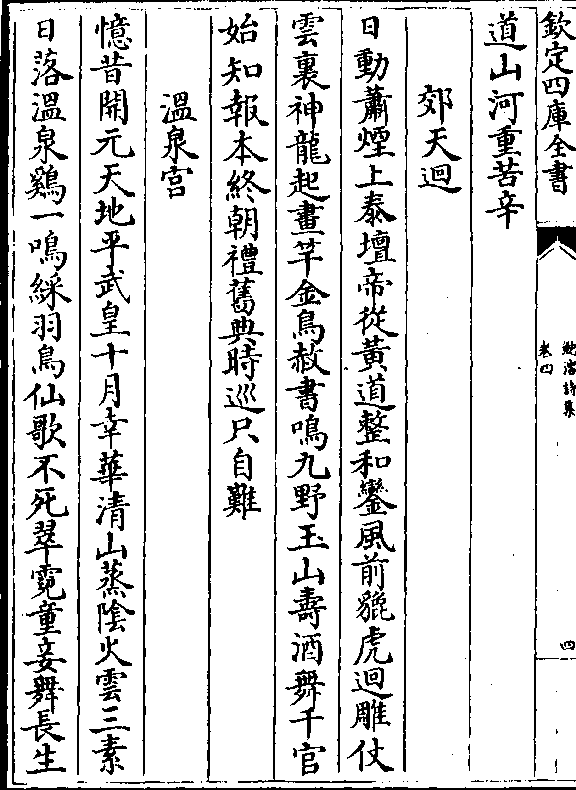 欽定四庫全書
鮑溶詩集
卷四
四
道山河重苦辛
郊天迴
日動蕭煙上泰壇帝從黃道整和鑾風前貔虎迴雕仗
雲裏神龍起畫竿金鳥赦書鳴九野玉山壽酒舞千官
始知報本終朝禮舊典時巡只自難
溫泉宮
憶昔開元天地平武皇十月幸華清山蒸陰火雲三素
日落溫泉鷄一鳴綵羽鳥仙歌不死翠霓童妾舞長生